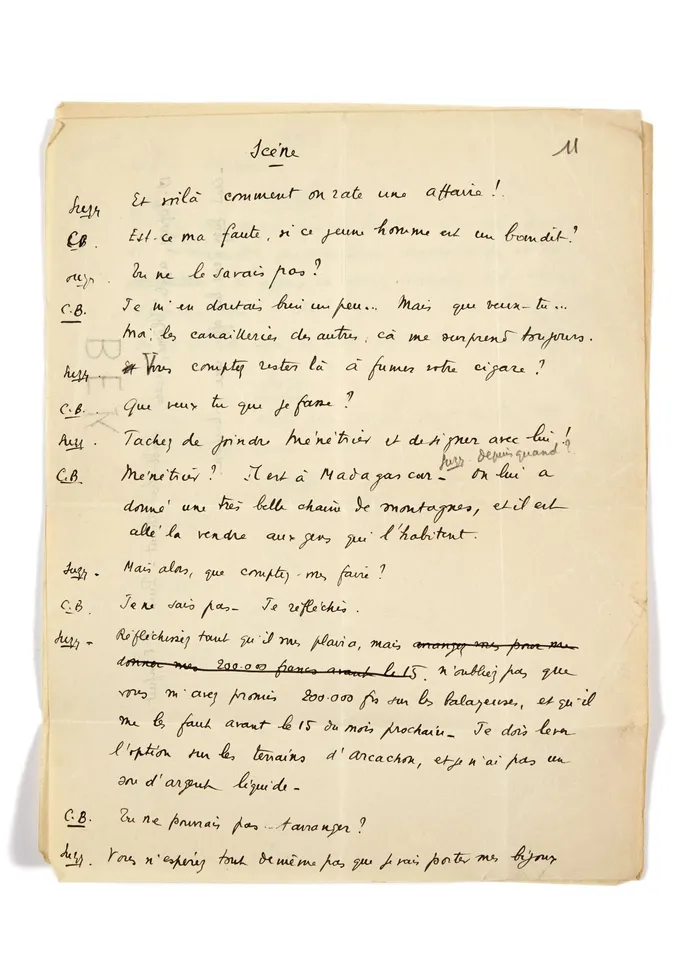 Scène
11
Suzy Et voilà comment on rate une affaire!
C.B. Est-ce ma faute, si ce jeune homme est un bandit?
Suzy. Tu ne le savais pas?
C.B. Je m'en doutais bien un peu... Mais que veux-tu...
Moi, les canailleries des autres, çà me surprend toujours.
Suzy. Vous comptez rester là à fumer votre cigare?
C.B. Que veux tu que je fasse?
Suzy. Tachez de joindre Ménétrier et de signer avec lui!
Suzy. depuis quand?
C.B. Ménétrier? Il est à Madagascar - on lui a
donné une très belle chaîne de montagnes, et il est
allé la vendre aux gens qui l'habitent.
Suzy - Mais alors, que comptez-vous faire?
C.B. Je ne sais pas - Je réfléchis.
Suzy - Réfléchissez tant qu'il vous plaira, mais arrangez vous pour me
donner mes 200.000 francs avant le 15. n'oubliez pas que
vous m'avez promis 200.000 frs sur les balayeuses, et qu'il
me les faut avant le 15 du mois prochain - Je dois lever
l'option sur les terrains d'Arcachon, et je n'ai pas un
sou d'argent liquide -
C.B. Tu ne pourrais pas t'arranger?
Suzy. Vous n'espérez tout de même pas que je vais porter mes bijoux
BEX